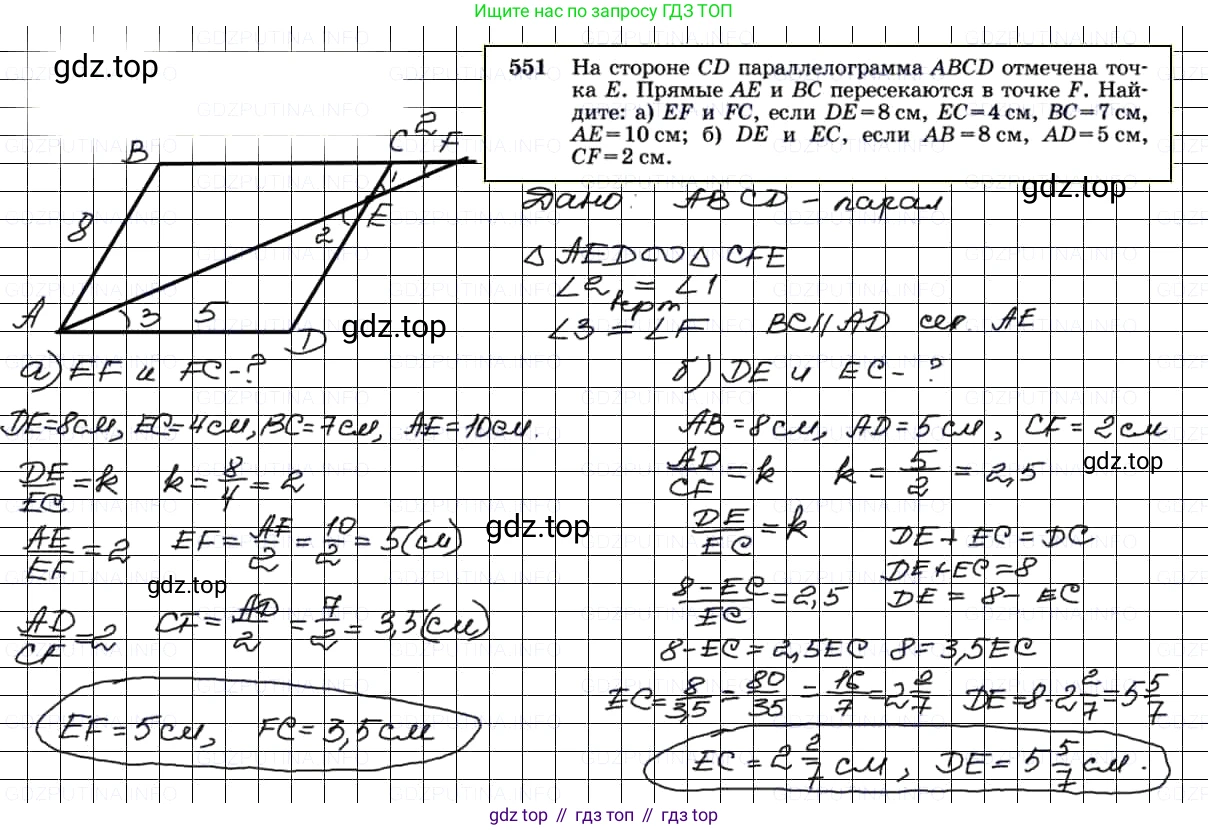 Ищите нас по запросу ГДЗ ТОП
gdz.top
551 На стороне CD параллелограмма ABCD отмечена точ-
ка E. Прямые AE и BC пересекаются в точке F. Най-
дите: а) EF и FC, если DE=8 см, EC=4 см, BC=7 см,
AE=10 см; б) DE и EC, если AB=8 см, AD=5 см,
CF=2 см.
gdz.top
B C 2 F
1
8 2 E
A 3 5 D
gdz.top
Дано: ABCD - парал
Δ AED ∾ Δ CFE
∠2 = ∠1
верт
∠3 = ∠F BC//AD сек. AE
а) EF и FC-?
DE=8см, EC=4см, BC=7см, AE=10см.
DE/EC = k k = 8/4 = 2
AE/EF = 2 EF = AE/2 = 10/2 = 5(см)
gdz.top
gdz.top
AD/CF = 2 CF = AD/2 = 7/2 = 3,5(см)
EF = 5см, FC = 3,5см
б) DE и EC - ?
AB = 8см, AD = 5 см, CF = 2 см
AD/CF = k k = 5/2 = 2,5
gdz.top
DE/EC = k DE + EC = DC
DE+EC=8
8-EC/EC = 2,5 DE = 8- EC
8-EC = 2,5EC 8 = 3,5EC
EC = 8/3,5 = 80/35 = 16/7 = 2 2/7 DE = 8-2 2/7 = 5 5/7
EC = 2 2/7 см, DE = 5 5/7 см.
gdz.top // гдз топ // gdz.top
GDZPUTINA.INFO